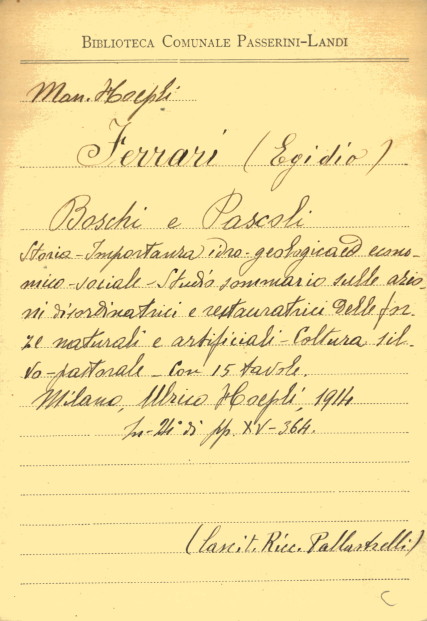 BIBLIOTECA COMUNALE PASSERINI-LANDI
Man. Hoepli
Ferrari (Egidio)
Boschi e Pascoli
Storia - Importanza idro-geologica ed econo-
mico-sociale - Studio sommario sulle azio-
ni disordinatrici e restauratrici delle for-
ze naturali e artificiali - Coltura sil-
vo-pastorale - Con 15 tavole.
Milano, Ulrico Hoepli, 1914
In-24° di pp. XV-364.
(Lascit. Ricc. Pallastrelli)
C